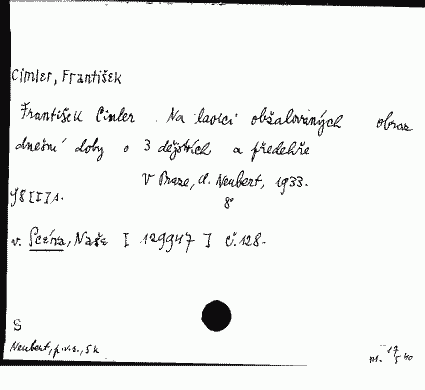 Cimler, František
František Cimler Na lavici obžalovaných obraz
dnešní doby o 3 dějstvích a předehře
V Praze, A. Neubert, 1933.
8°
98 [I] 1.
v. Scéna, Naše [ 129947 ] č. 128.
S
Neubert, p.v.s., 5 k
m. 17/5 40